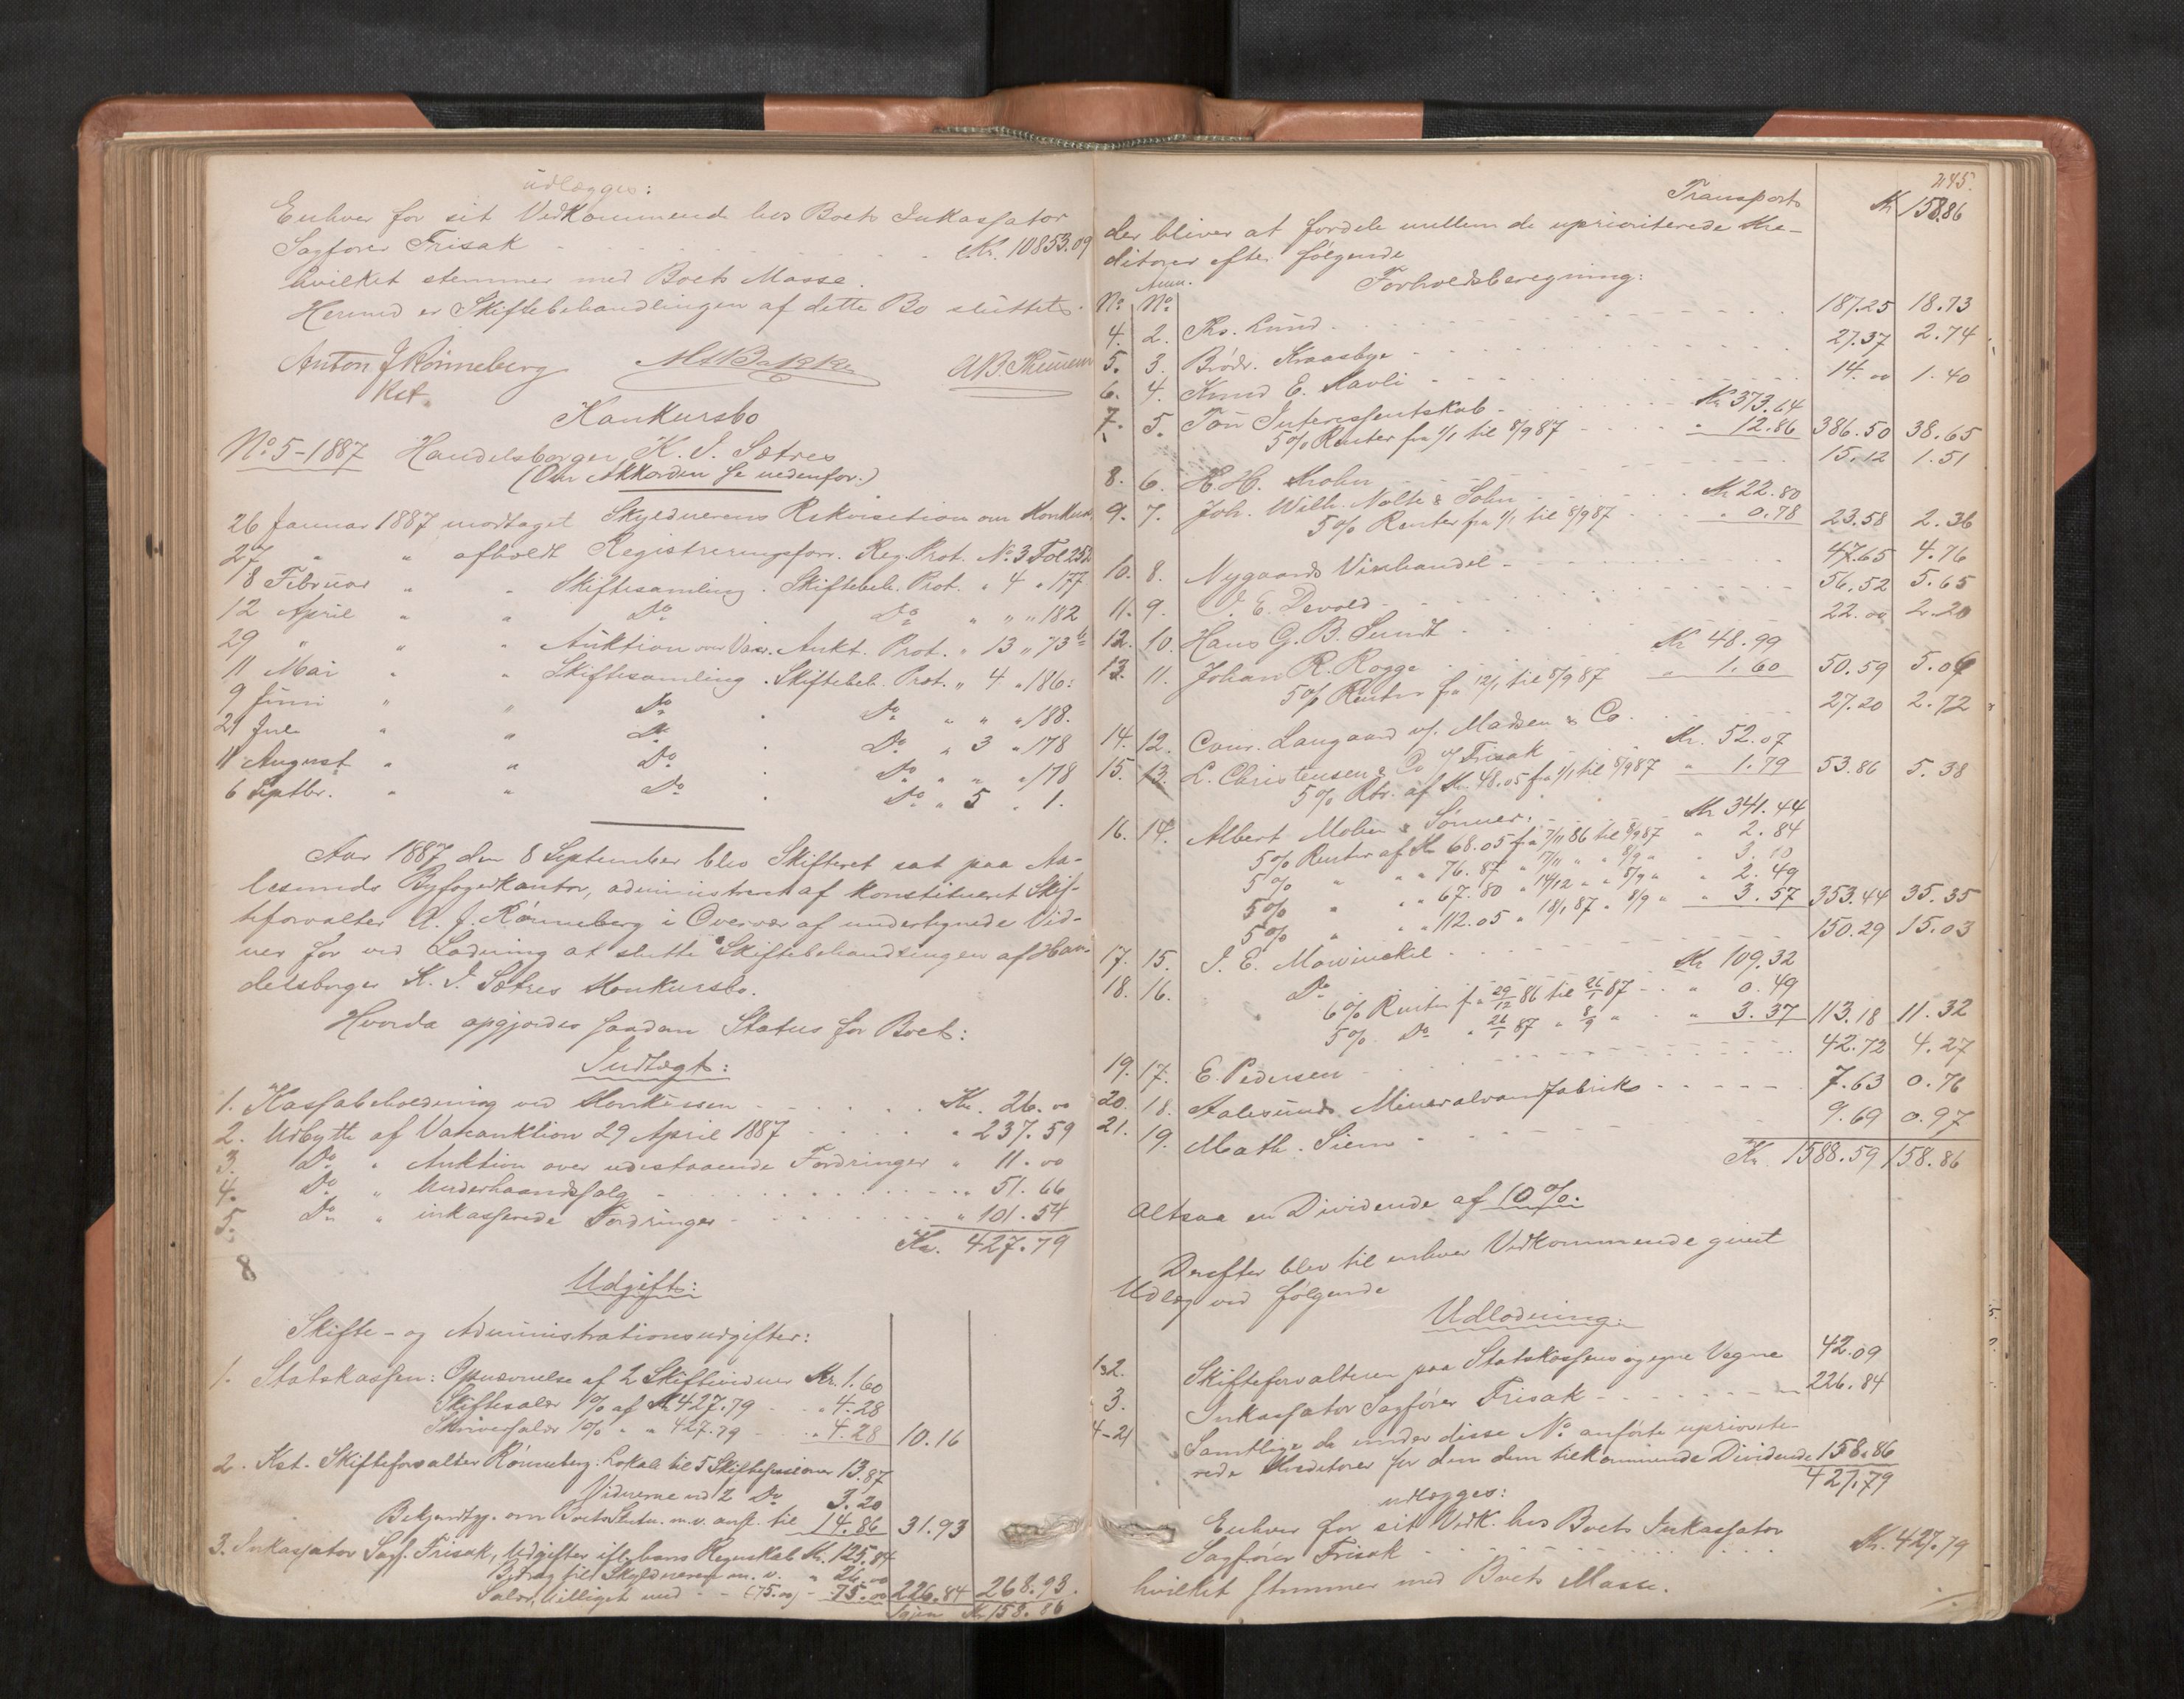 udlægges:
Enhver for sit Vedkommende hos Boets Inkassator
Sagfører Frisak Kr. 10853.09
hvilket stemmer med Boets Masse.
Hermed er Skiftebehandlingen af dette Bo sluttet.
Anton J Rønneberg
Kst.
Konkursbo
No 5-1887 Handelsborger K. J. Sætres
(Om Akkorden se nedenfor.)
26 Januar 1887 modtaget Skyldnerens Rekvisition om Konkurs
27 " " afholdt Registreringsforr. Reg. Prot. No 3 Fol 252
18 Februar " " Skiftesamling. Skiftebeh. Prot. " 4 " 177
12 April " " Do Do " " " 182
29 " " " Auktion over Varer. Aukt. Prot. " 13 " 73 b
11 Mai " " Skiftesamling. Skiftebeh. Prot. " 4 " 186.
9 Juni " " Do Do " " " 188.
29 Juli " " Do Do " 3 " 178
11 August " " Do Do " " " 178
6 Septbr. " " Do Do " 5 " 1.
Aar 1887 den 8 September blev Skifteret sat paa Aa-
lesunds Byfogedkontor, administreret af konstitueret Skif-
teforvalter A. J. Rønneberg i Overvær af undertegnede Vid-
ner for ved Lodning at slutte Skiftebehandlingen af Han-
delsborger K. J. Sætres Konkursbo.
Hvorda opgjordes saadan Status for Boet:
Indtægt:
1. Kassabeholdning ved Konkursen Kr. 26.00
2. Udbytte af Vareauktion 29 April 1887 " 237.59
3. Do " Auktion over udestaaende Fordringer " 11.00
4. Do " Underhaandssalg " 51.66
5. Do " inkasserede Fordringer " 101.54
Kr. 427.79
8
Udgift:
Skifte- og Administrationsudgifter:
1. Statskassen: Opnævnelse af 2 Skiftevidner Kr. 1.60
Skiftesalær 1% af Kr 427.79 " 4.28
Skriversalær 1% " " 427.79 " 4.28 10.16
2. Kst. Skifteforvalter Rønneberg: Lokale til 5 Skiftesessioner 13.87
Vidnerne ved 2 Do 3.20
Bekjendtgj. om Boets Slutn. m. v. ansl. til 14.86 31.93
3. Inkassator Sagf. Frisak, Udgifter ifl. hans Regnskab Kr. 125.84
Bidrag til Skyldneren m. v. " 26.00
Salær, billiget med (75.00) 75.00 226.84 268.93.
Igjen Kr 158.86
245.
Transport Kr 158.86
der bliver at fordele mellem de uprioriterede Kre-
ditorer efter følgende
Forholdsberegning:
No Anm. No
4. 2. Ths. Lund 187.25 18.73
5. 3. Brødr. Kraasbye 27.37 2.74
6. 4. Knud E. Ravli 14.00 1.40
7. 5. Tøn Interessentskab Kr 373.64
5% Renter fra 1/1 til 8/9 87 " 12.86 386.50 38.65
8. 6. H. H. Krohn 15.12 1.51
9. 7. Joh. Wilh. Nolte & Sohn Kr 22.80
5% Renter fra 1/1 til 8/9 87 " 0.78 23.58 2.36
10. 8. Nygaards Vinhandel 47.65 4.76
11. 9. J. E. Devold 56.52 5.65
12. 10. Hans G. B. Sundt 22.00 2.20
13. 11. Johan R. Rogge Kr 48.99
5% Renter fra 12/1 til 8/9 87 " 1.60 50.59 5.06
14. 12. Conr. Langaard v/ Madsen & Co. 27.20 2.72
15. 13. L. Christensen & Co v/ Frisak Kr. 52.07
5% Rtr. af Kr. 48.05 fra 1/1 til 8/9 87 " 1.79 53.86 5.38
16. 14. Albert Mohn & Sønner Kr 341.44
5% Renter af Kr 68.05 fra 7/11 86 til 8/9 87 " 2.84
5% " " " 76.87 " 7/11 " " 8/9 " " 3.10
5% " " " 67.80 " 14/12 " " 8/9 " " 2.49
5% " " " 112.05 " 18/1 87 " 8/9 " " 3.57 353.44 35.35
17. 15. J. E. Mowinckel 150.29 15.03
18. 16. Do Kr 109.32
6% Renter fra 29/12 86 til 26/1 87 " 0.49
5% Do " 26/1 87 " 8/9 " " 3.37 113.18 11.32
19. 17. E. Pedersen 42.72 4.27
20. 18. Aalesunds Mineralvandfabrik 7.63 0.76
21. 19. Math. Siem 9.69 0.97
Kr. 1588.59 158.86
Altsaa en Dividende af 10%.
Derefter blev til enhver Vedkommende givet
Udlæg ved følgende
Udlodning:
1-2. Skifteforvalteren paa Statskassens og egne Vegne 42.09
3. Inkassator Sagfører Frisak 226.84
4-21 Samtlige de under disse No anførte upriorite-
rede Kreditorer for den dem tilkommende Dividende 158.86
427.79
udlægges:
Enhver for sit Vedk. hos Boets Inkassator
Sagfører Frisak Kr. 427.79
hvilket stemmer med Boets Masse.